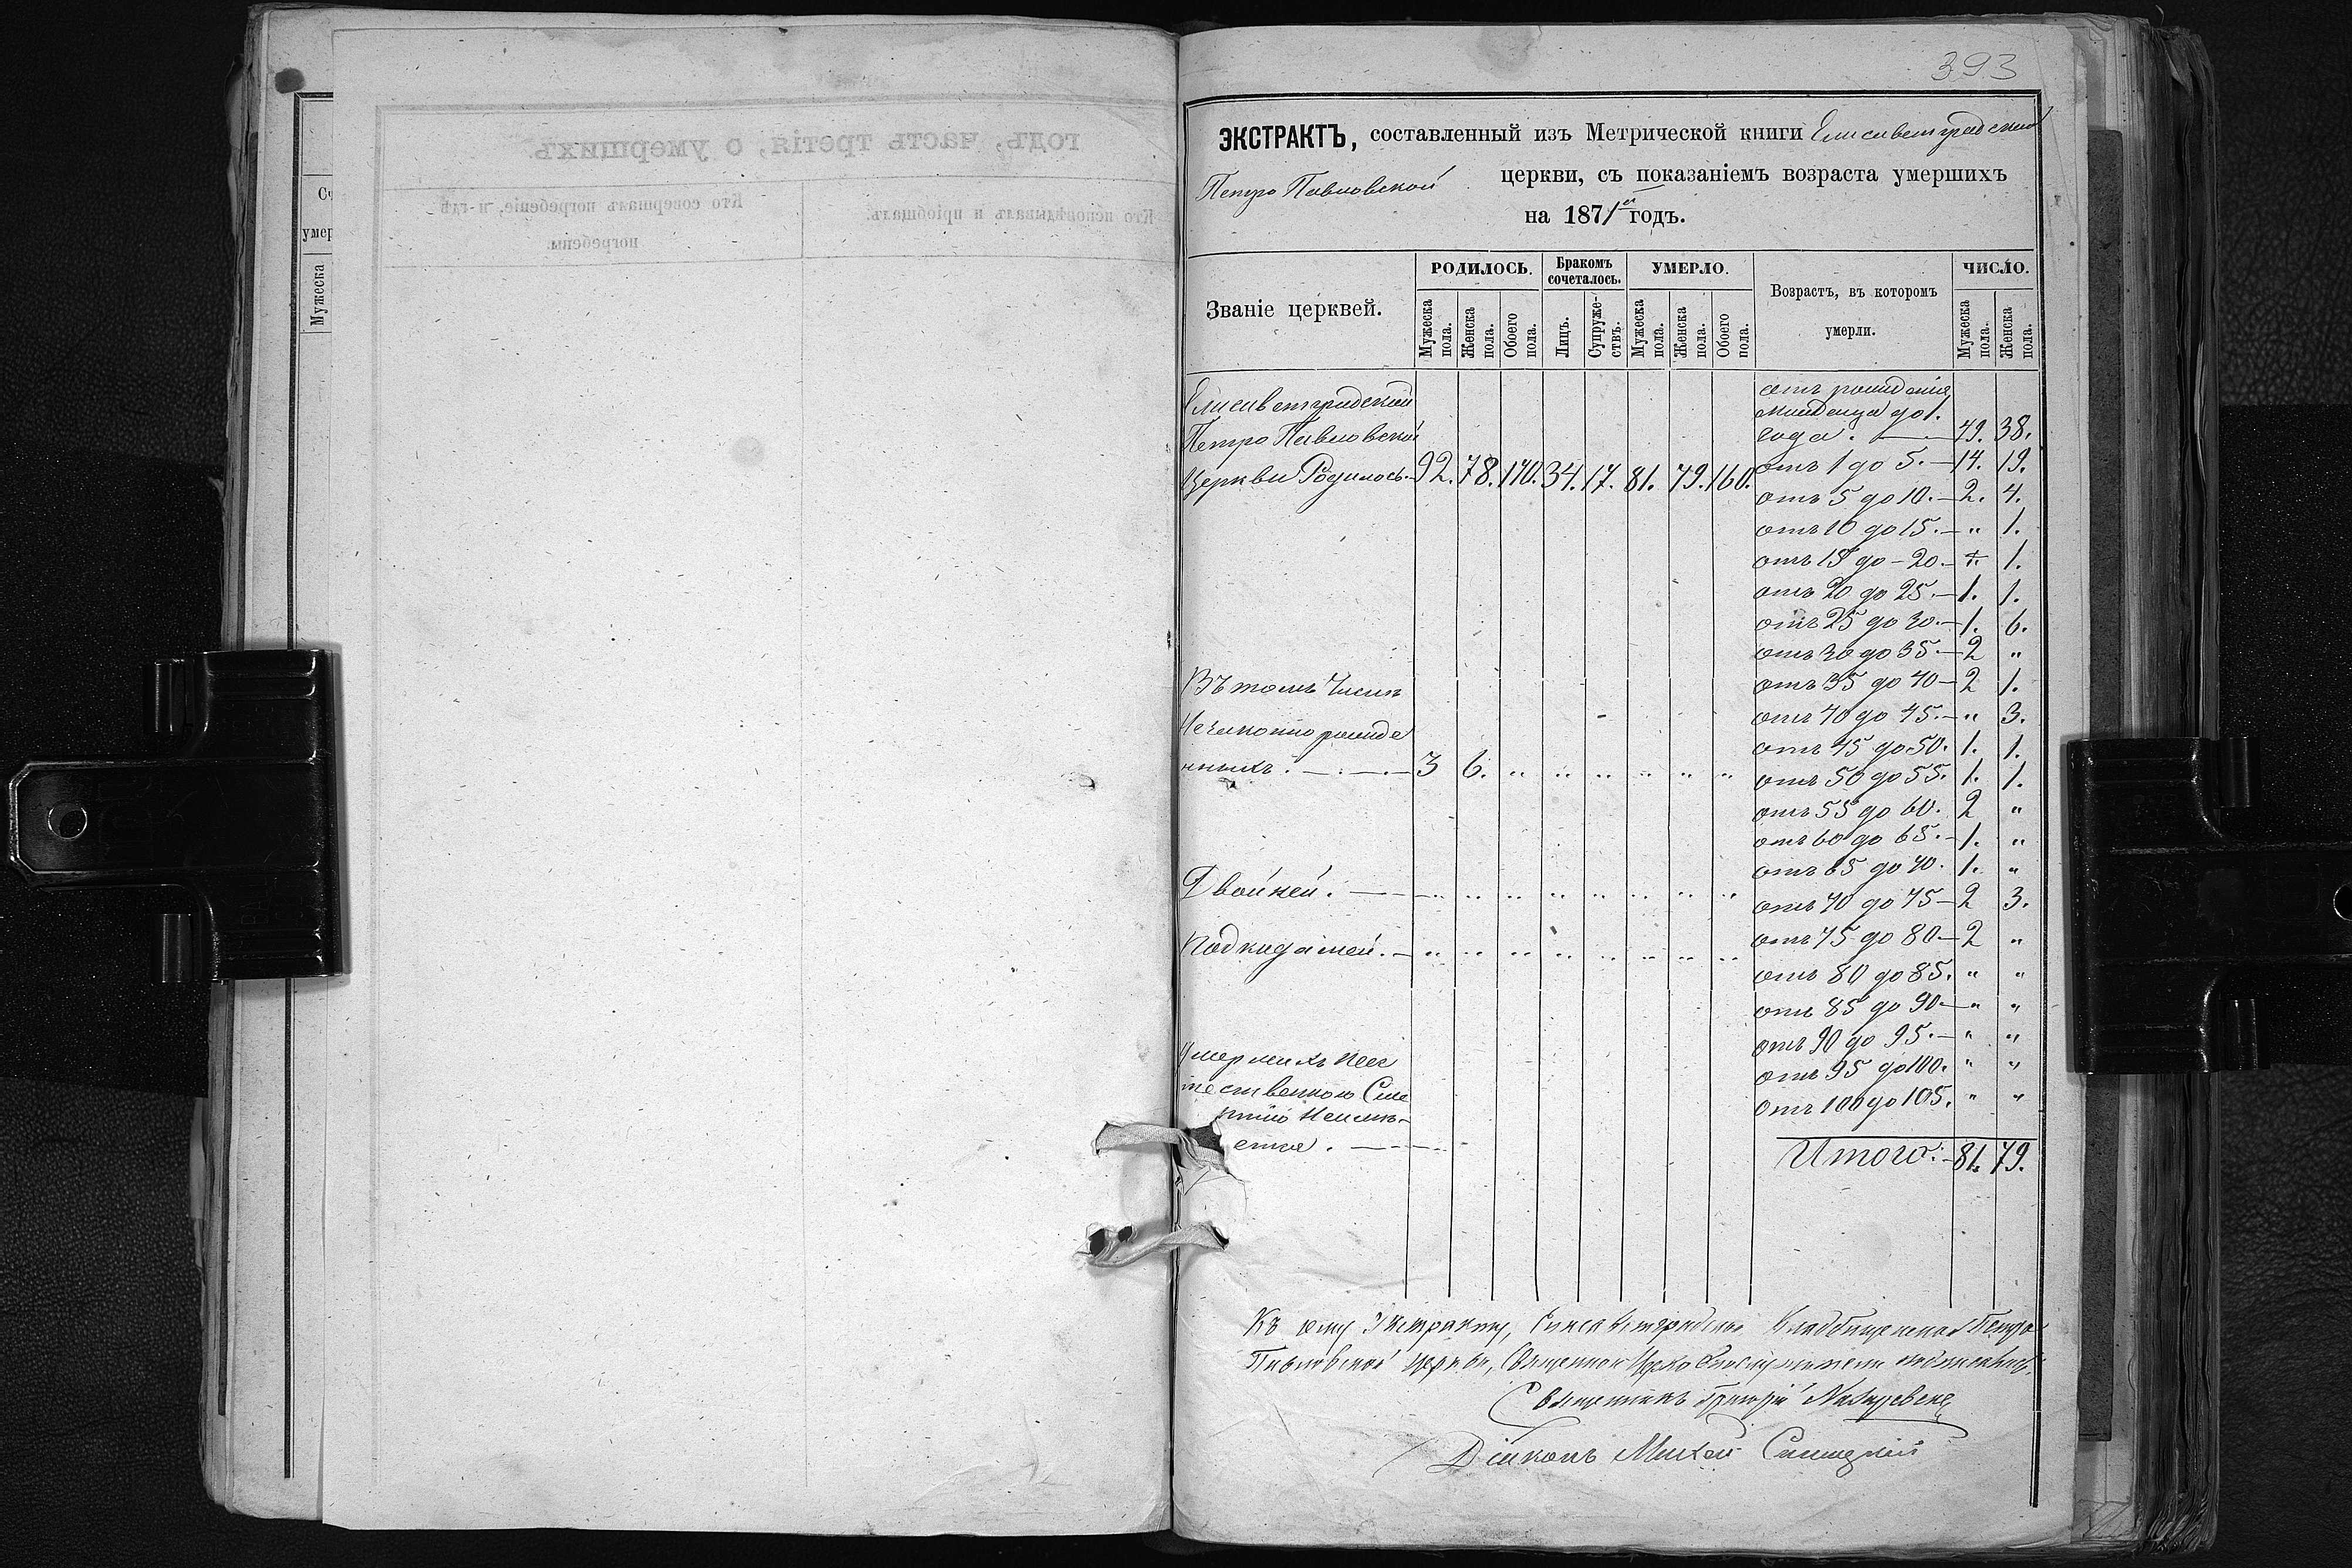 Сч
умер
Мужеска
годъ, часть третія, о умершихъ.
Кто исповѣдывалъ и пріобщалъ.
Кто совершалъ погребеніе, и гдѣ
погребены.
393
ЭКСТРАКТЪ, составленный изъ Метрической книги Елисаветградской
Петро Павловской церкви, съ показаніемъ возраста умершихъ
на 1871й годъ.
Званіе церквей.
РОДИЛОСЬ.
Бракомъ сочеталось.
УМЕРЛО.
Возрастъ, въ которомъ умерли.
ЧИСЛО.
Мужеска пола.
Женска пола.
Обоего пола.
Лицъ.
Супружествъ.
Мужеска пола.
Женска пола.
Обоего пола.
Мужеска пола.
Женска пола.
Елисаветградской
Петро Павловской
Церкви Родилось. 92. 78. 170. 34. 17. 81. 79. 160.
Въ томъ числѣ
Незаконно рожде
нныхъ. 3 6. " " " " " "
Двойней. " " " " " " " "
Подкидышей. " " " " " " " "
Умершихъ неес
тественною Сме
ртію
отъ рожденія
младенца до 1.
года. 49. 38.
отъ 1 до 5. 14. 19.
отъ 5 до 10. 2. 4.
отъ 10 до 15. " 1.
отъ 15 до 20. 1.
отъ 20 до 25. 1. 1.
отъ 25 до 30. 1. 6.
отъ 30 до 35. 2 "
отъ 35 до 40 2 1.
отъ 40 до 45. " 3.
отъ 45 до 50. 1. 1.
отъ 50 до 55. 1. 1.
отъ 55 до 60. 2 "
отъ 60 до 65. 1. "
отъ 65 до 70. 1. "
отъ 70 до 75 2 3.
отъ 75 до 80 2 "
отъ 80 до 85. " "
отъ 85 до 90 " "
отъ 90 до 95. " "
отъ 95 до 100. " "
отъ 100 до 105. " "
Итого: 81. 79.
Къ сему Экстракту, Елисаветградской Кладбищенской Петро
Павловской церкви, Священно Церковнослужители
Священникъ Григорій
Діаконъ Михаил